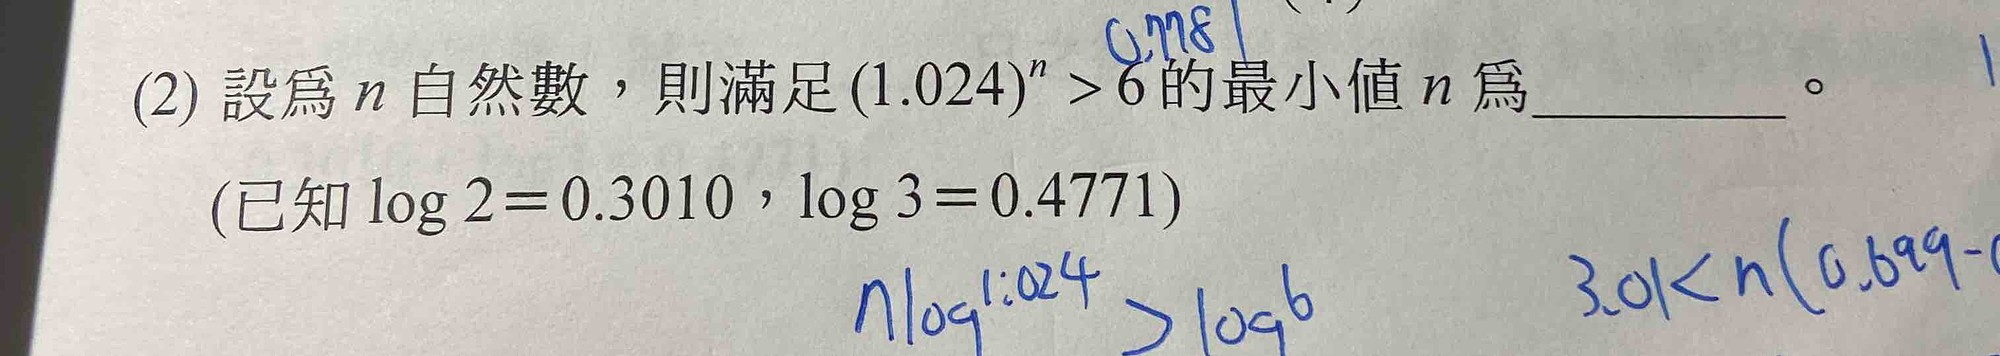 0.7781
(2) 設爲 n 自然數，則滿足 (1.024)ⁿ > 6 的最小值 n 爲________。
(已知 log 2＝0.3010，log 3＝0.4771)
n log 1.024 > log 6
3.01 < n(0.699-